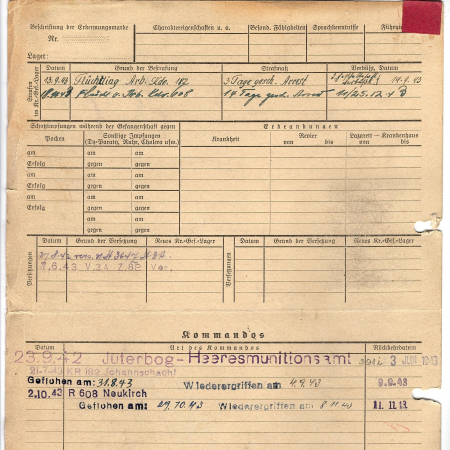 Beschriftung der Erkennungsmarke
Nr.
Lager:
Charaktereigenschaften u. a.
Besond. Fähigkeiten
Sprachkenntnisse
Führung
Strafen im Kr.-Gef.-Lager
Datum Grund der Bestrafung Strafmaß Verbüßt, Datum
13.9.43 Arb. Kdo. 182 3 Tage gesch. Arrest 14.9.43
Flucht v. Arb. Kdo. 608 14 Tage gesch. Arrest
Schutzimpfungen während der Gefangenschaft gegen
Erkrankungen
Pocken
Sonstige Impfungen
(Ty-Paraty, Ruhr, Cholera usw.)
Krankheit
Revier
von bis
Lazarett - Krankenhaus
von bis
am am am
Erfolg gegen gegen
am am am
Erfolg gegen gegen
am am am
Erfolg gegen gegen
am am am
Erfolg gegen gegen
Versetzungen
Datum Grund der Versetzung Neues Kr.-Gef.-Lager
Versetzungen
Datum Grund der Versetzung Neues Kr.-Gef.-Lager
7.6.43 V.3A Z.88 Ver.
Kommandos
Datum Art des Kommandos Rückkehrdatum
23.9.42 Jüterbog-Heeresmunitionsamt 3 JUNI 1943
21.7.43 KR 182 Johannschacht
Geflohen am: 31.8.43 Wiederergriffen am 4.9.43 9.9.43
2.10.43 R 608 Neukirch
Geflohen am: 29.10.43 Wiederergriffen am 8.11.43 11.11.43